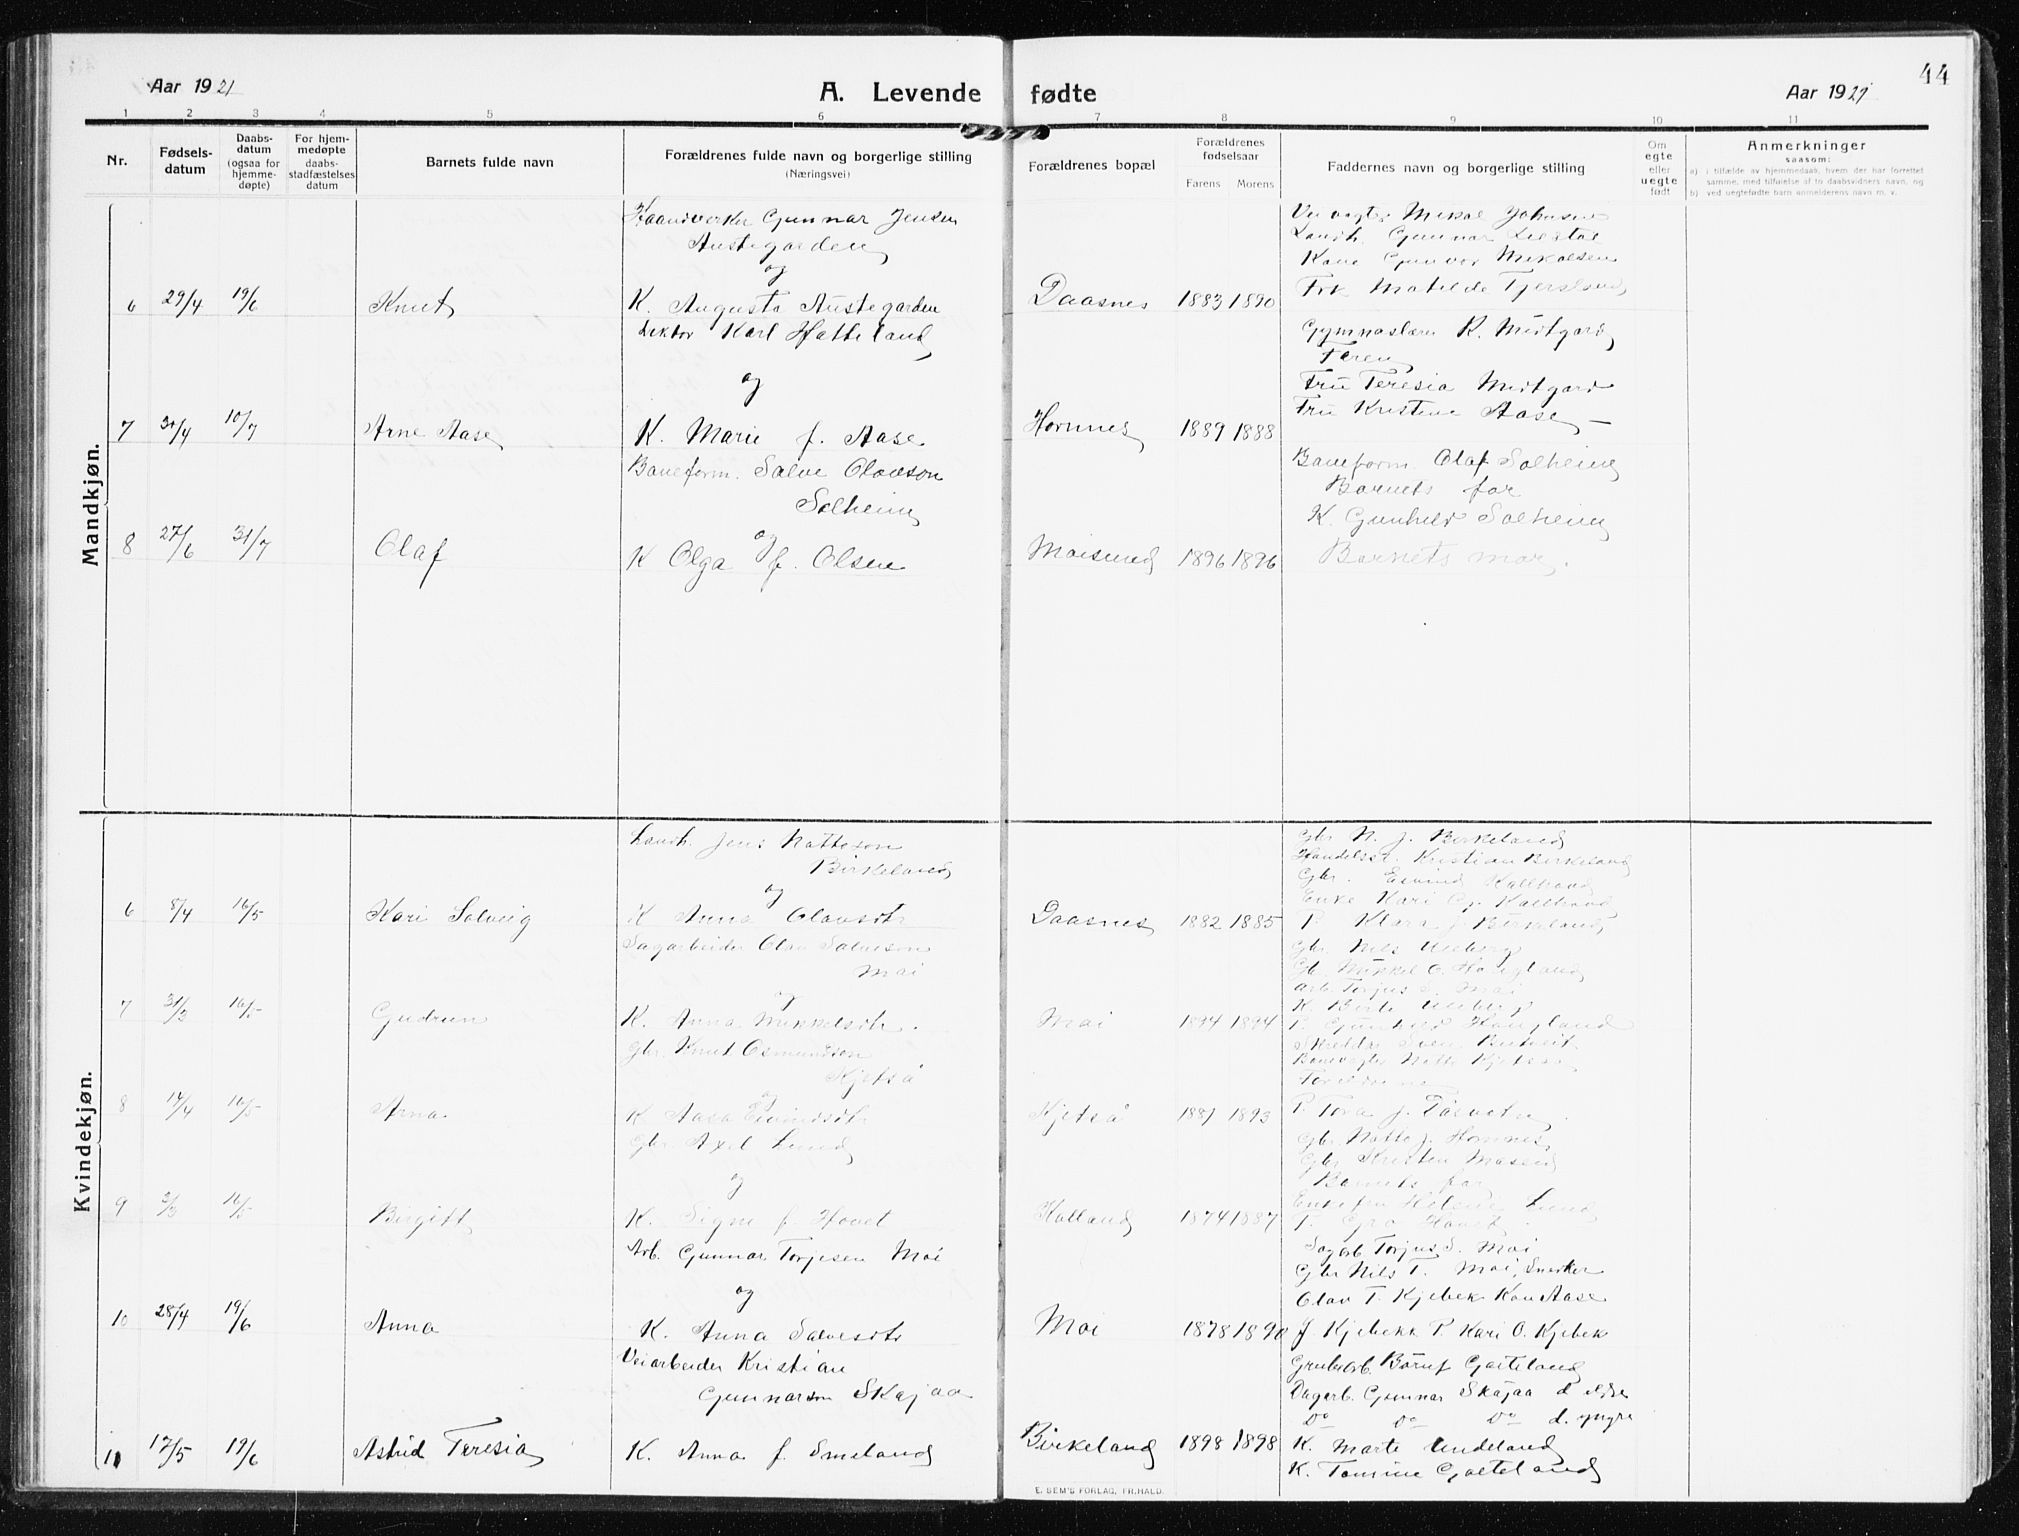 44
Aar 1921
A. Levende fødte
Aar 1921
1 2 3 4 5 6 7 8 9 10 11
Nr.
Fødsels-
datum
Daabs-
datum
(ogsaa for
hjemme-
døpte)
For hjem-
medøpte
daabs-
stadfæstelses
datum
Barnets fulde navn
Forældrenes fulde navn og borgerlige stilling
(Næringsvei)
Forældrenes bopæl
Forældrenes
fødselsaar
Farens Morens
Faddernes navn og borgerlige stilling
Om
egte
eller
uegte
født
Anmerkninger
saasom:
a) i tilfælde av hjemmedaab, hvem der har forrettet
samme, med tilføielse af to daabsvidners navn, og
b) ved uegtefødte barn anmelderens navn m. v.
Mandkjøn.
Haandverker Gunnar Jensen
Austegarden
og
6 29/4 19/6 Knut K. Augusta Austegarden Daasnes 1883 1890
Veivogter Mikal Johnsen
Landh. Gunnar Lilstøl
Kone Gunvor Mikalsen
Frk Matilde
Lektor Karl Hatteland
og
7 10/7 Arne Aase K. Marie f. Aase Hornnes 1889 1888
Gymnaslær. K. Midtgard
Faren
Fru Teresia Midtgard
Fru Kristine Aase
Baneform. Salve Olavson
Solheim
og
8 27/6 31/7 Olaf K Olga f. Olsen Moisund 1896 1896
Baneform. Olaf Solheim
Barnets far
K. Gunhild Solheim
Barnets mor.
Kvindekjøn.
Landh. Jens Natteson
Birkeland
og
6 8/4 16/5 Kari Solveig K Anna Olavsdtr Daasnes 1882 1885
Gbr N. J. Birkeland
Handelsr. Kristian Birkeland
Gbr. Eivind Kallhovd
Enke Kari G. Kallhovd
P. Klara J. Birkeland
Sagarbeider Olav Salveson
Moi
og
7 31/3 16/5 Gudrun K. Anna Mikkelsdtr. Moi 1894 1894
Gbr Nils Uleberg
Gb. Mikkel O. Haugland
Arb. Torjus S. Moi
K. Birte Uleberg
P. Gunhild Haugland
Gbr. Knut Osmundson
Kjetså
og
8 14/4 16/5 Arna K Aasa Eivindsdtr Kjetså 1881 1893
Skredder Sven
Banevogter Natte Kjetså
Foreldrene
P. Tora J.
Gbr. Axel Lund
og
9 16/5 Birgitt K. Signe f. Hovet Kalland 1874 1887
Gbr. Natte J. Hornnes
Gbr Kristen
Barnets far
Enkefru Helene Lund
P. Gro Hovet
Arb. Gunnar Torjesen Moi
og
10 28/4 19/6 Anna K. Anna Salvesdtr Moi 1878 1890
Sagarb Torjus S. Moi
Gbr Nils T. Moi, Snekker
Olav T. Kjebek Kon Aase
J Kjebekk P. Kari O. Kjebek
Veiarbeider Kristian
Gunnarson Skajaa
11 17/5 19/6 Astrid Teresia K. Anna f. Smeland Birkeland 1898 1898
Grubearb. Børuf Gaiteland
Dagarb. Gunnar Skajaa d. eldre
Do Do Do d. yngre
K. Marte Undeland
K. Tomine Gaiteland
E. SEM'S FORLAG, FR.HALD.